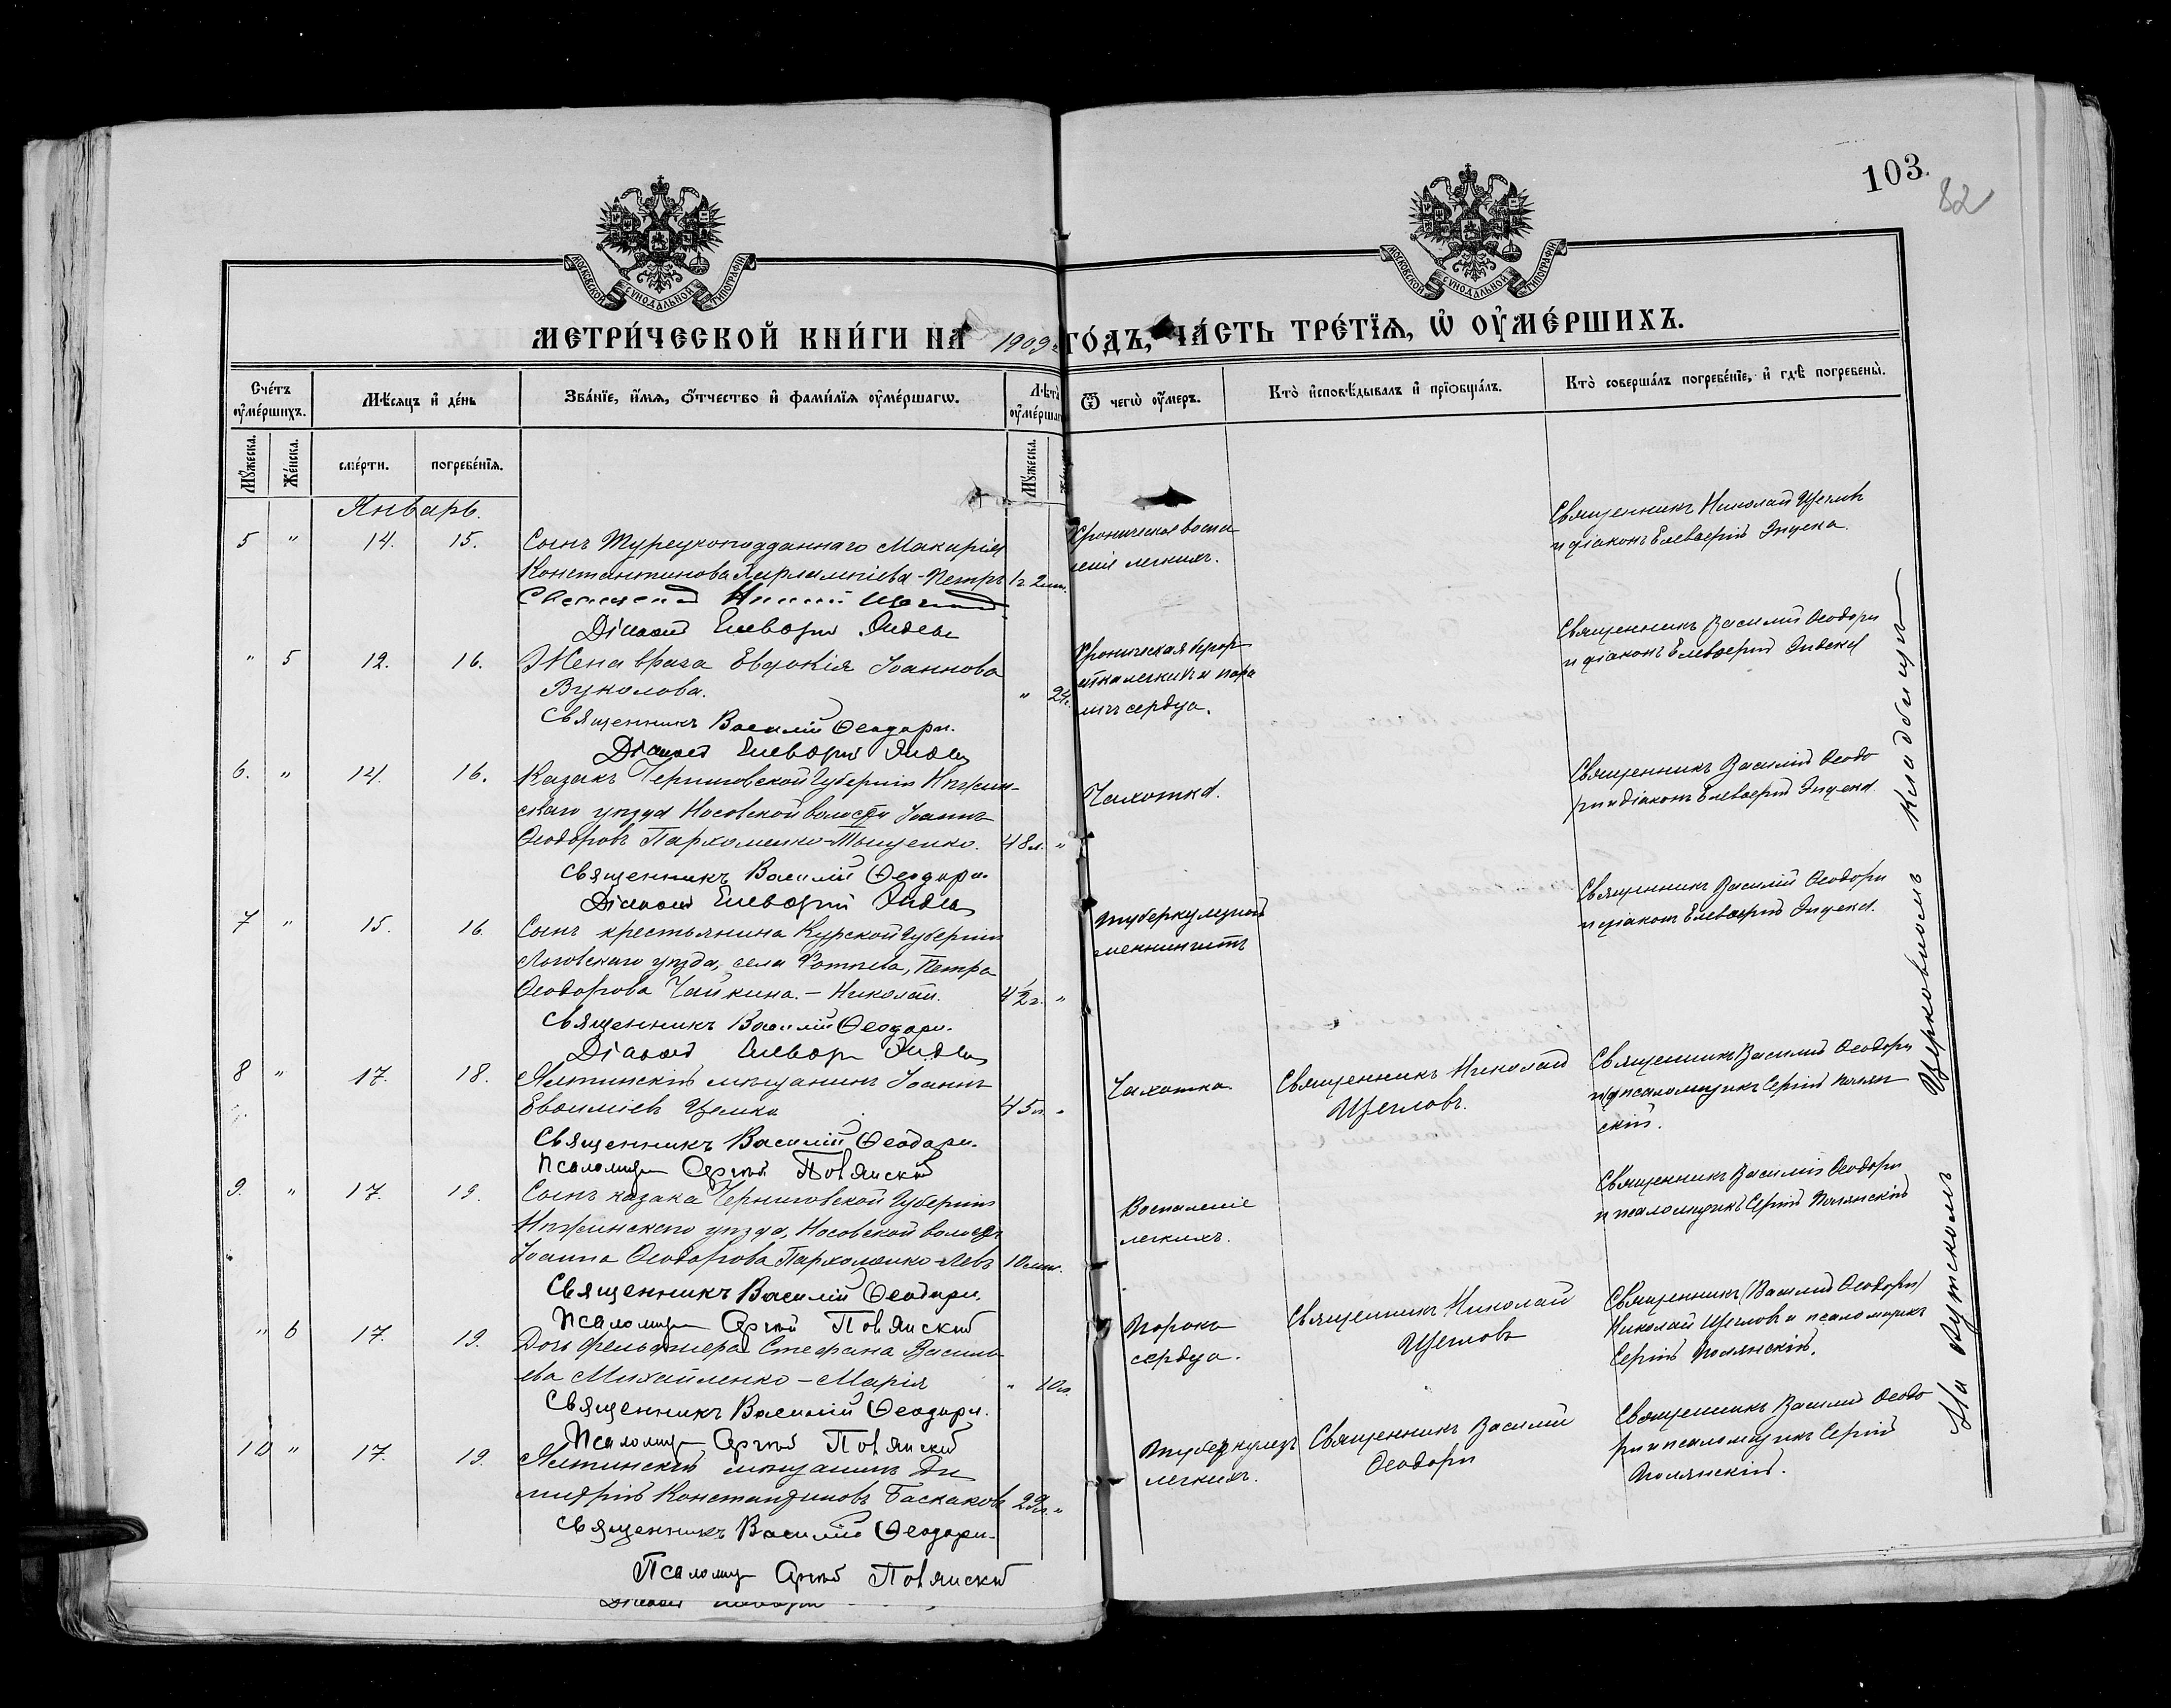 103.
82
МОСКОВСКОЙ СѴНОДАЛЬНОЙ ТИПОГРАФІИ
МОСКОВСКОЙ СѴНОДАЛЬНОЙ ТИПОГРАФІИ
МЕТРИ́ЧЕСКОЙ КНИ́ГИ НА 1909 г ГО́ДЪ, ЧА́СТЬ ТРЕ́ТЇѦ, Ѡ҆ ОУ҆МЕ́РШИХЪ.
Сче́тъ оу҆ме́ршихъ.
Мѣ́сяцъ и҆ де́нь
Зва́нїе, и҆́мѧ, ѻ҆́тчество и҆ фами́лїѧ оу҆ме́ршагѡ.
Лѣ́та оу҆ме́ршаг
Ѿ чегѡ̀ оу҆́меръ.
Кто̀ и҆сповѣ́дывалъ и҆ прїѡбща́лъ.
Кто̀ соверша́лъ погребе́нїе, и҆ гдѣ̀ погребены̀.
Мꙋ́жеска.
Же́нска.
сме́рти.
погребе́нїѧ.
Мꙋ́жеска.
Январь.
5 " 14. 15.
Сынъ Турецкоподданнаго Макарія
Константинова Харлампіева - Петръ 1 г. 2 мм.
Хроническое воспа
леніе легкихъ.
Священникъ Николай Щегловъ
и діаконъ Елевѳерій Индека.
Діаконъ Елевѳерій Индека
" 5 12. 16.
Жена врача Евдокія Іоаннова
Вуколова. " 24.
Священникъ Василій Ѳеодори.
Діаконъ Елевѳерій Индека
Хроническая
легкихъ и пара
личъ сердца.
Священникъ Василій Ѳеодори
и діаконъ Елевѳерій Индека
6. " 14. 16.
Казакъ Черниговской Губерніи Нѣжин-
скаго уѣзда Носовской волости Іоаннъ
Ѳеодоровъ Пархоменко-Тыщенко. 48 л. "
Священникъ Василій Ѳеодори.
Діаконъ Елевѳерій Индека
Чахотка.
Священникъ Василій Ѳеодо
ри и діаконъ Елевѳерій Индека.
7 " 15. 16.
Сынъ крестьянина Курской Губерніи
уѣзда, села Петра
Ѳеодорова Чайкина. - Николай. 4½ г. "
Священникъ Василій Ѳеодори.
Діаконъ Елевѳерій Индека
Туберкулезный
менингитъ
Священникъ Василій Ѳеодори
и діаконъ Елевѳерій Индека.
8 " 17. 18.
Ялтинскій мѣщанинъ Іоаннъ
Евѳиміевъ 45 л. "
Священникъ Василій Ѳеодори.
Псаломщ Сергій Полянскій
Чахотка.
Священникъ Николай
Щегловъ.
Священникъ Василій Ѳеодори
и псаломщикъ Сергій Полян
скій.
9. " 17. 19.
Сынъ казака Черниговской Губерніи
Нѣжинскаго уѣзда, Носовской волости
Іоанна Ѳеодорова Пархоменко-Левъ 10 мм.
Священникъ Василій Ѳеодори.
Псаломщ Сергій Полянскій
Воспаленіе
легкихъ.
Священникъ Василій Ѳеодори
и псаломщикъ Сергій Полянскій
" 6 17. 19.
Дочь фельдшера Стефана Василь
ева Михайленко - Марія " 10 л.
Священникъ Василій Ѳеодори.
Псаломщ Сергій Полянскій
Порокъ
сердца.
Священникъ Николай
Щегловъ
Священникъ (Василій Ѳеодори)
Николай Щегловъ и псаломщикъ
Сергій Полянскій.
10 " 17. 19.
Ялтинскій мѣщанинъ Ди
митрій Константиновъ Баскаковъ 29 л. "
Священникъ Василій Ѳеодори.
Псаломщ Сергій Полянскій
Туберкулезъ
легкихъ.
Священникъ Василій
Ѳеодори
Священникъ Василій Ѳеодо
ри и псаломщикъ Сергій
Полянскій.
На Аутскомъ Церковномъ Кладбищѣ